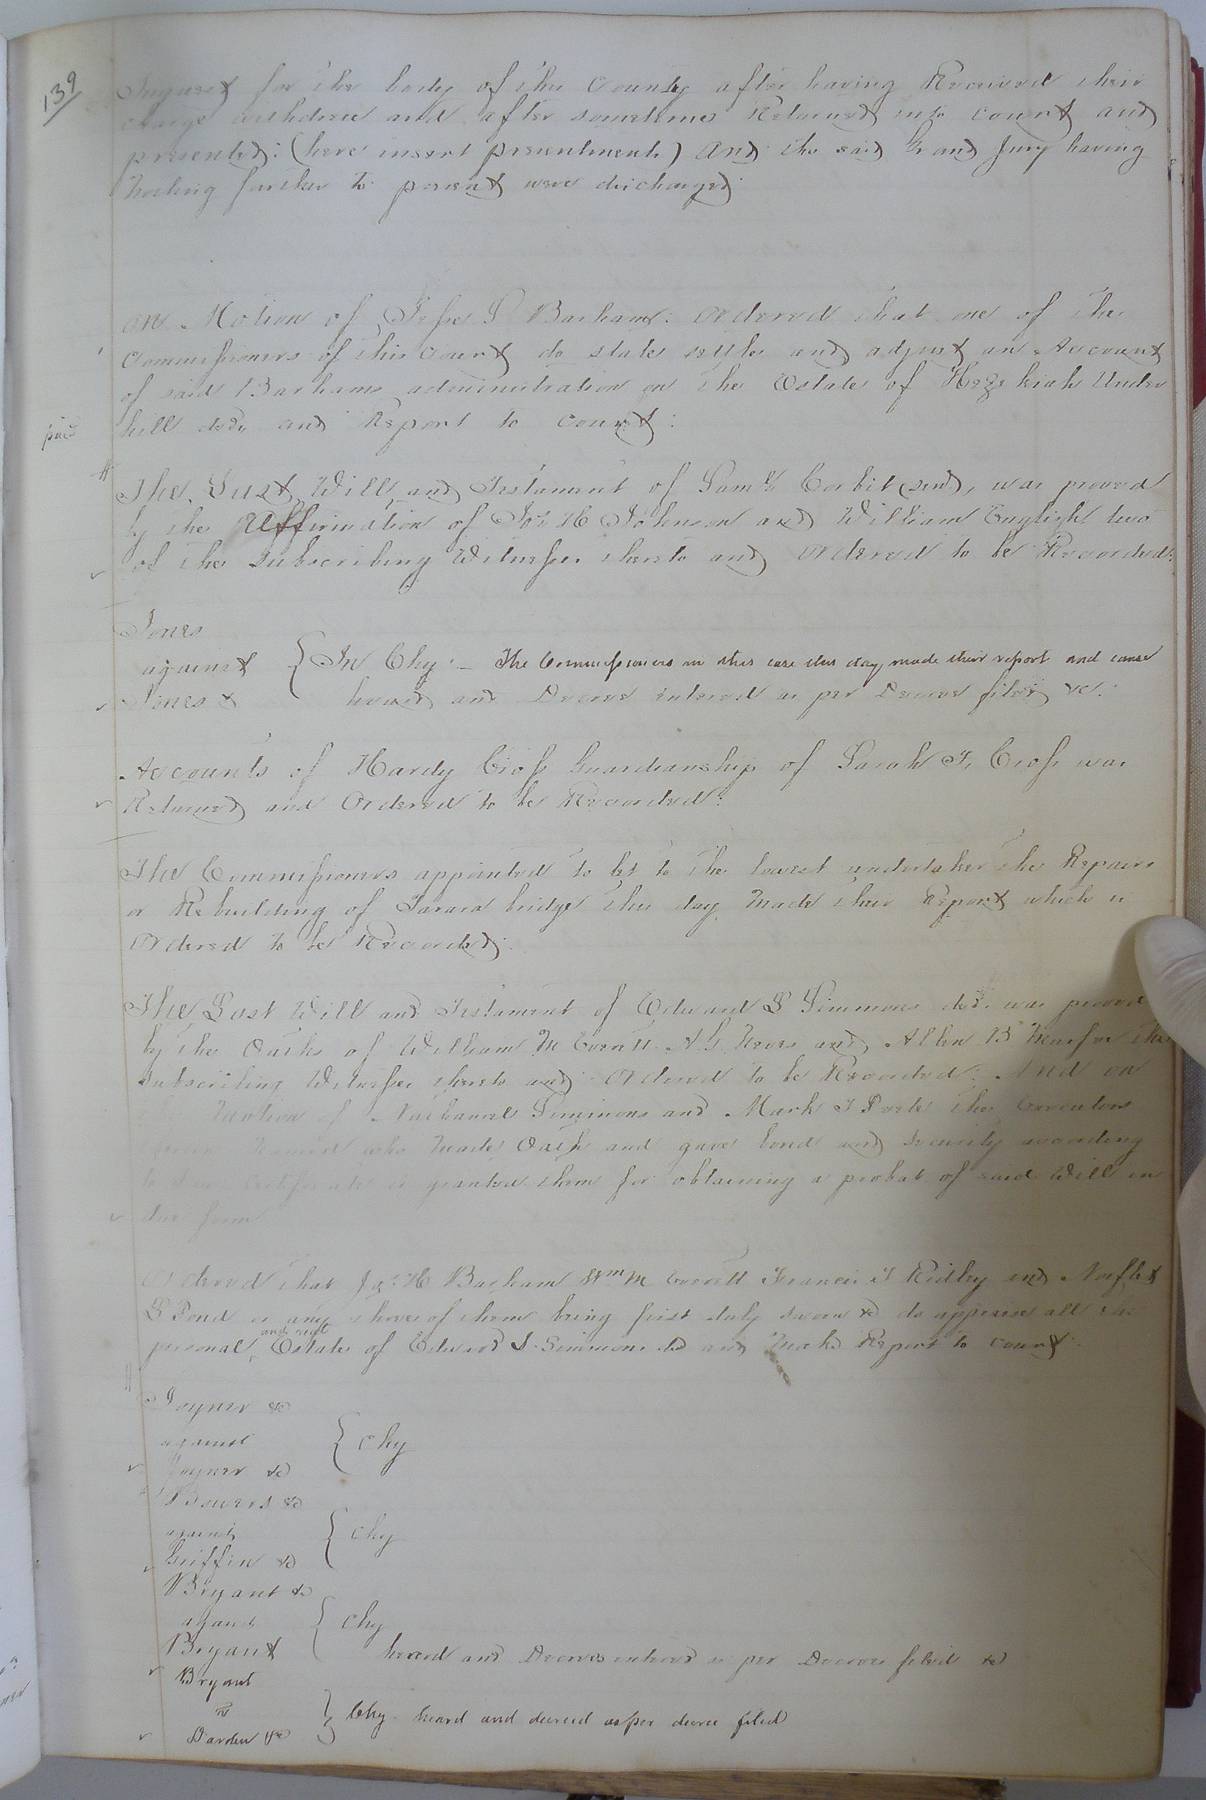 139
Inquest for the body of this County after having Received their
charge withdrew and after sometimes Returned into court and
presented: (here insert presentments) And the said Grand Jury having
nothing further to present were discharged.
On Motion of Jesse S Barham: Ordered that one of the
Commissioners of this Court do state settle and adjust an Account
of said Barhams administration on the Estate of Hezekiah Under
paid
hill decd. and Report to Court:
The Last Will and Testament of Saml. Corbit (sen), was proved
by the Affirmation of Jos H Johnson and William English two
of the subscribing Witnesses thereto and Ordered to be Recorded:
Jones
against } In Chy: – The Commissioners in this case this day made their report and cause
Jones & heard and Decree entered as per Decree filed &c.
Accounts of Hardy Cross Guardianship of Sarah F. Cross was
Returned and Ordered to be Recorded:
The Commissioners appointed to let to the lowest undertaker the Repairs
or Rebuilding of bridge this day made their Report which is
Ordered to be Recorded:
The Last Will and Testament of Edward S Simmons decd. was proved
by the Oaths of William M Everitt A G and Allen B the
subscribing Witnesses thereto and Ordered to be Recorded: And on
Motion of Nathaniel Simmons and Mark the Executors
named who made Oath and gave bond and security according
to law Certificate is granted them for obtaining a probat of said Will in
due form
Ordered that Jas. H Barham Wm M Everitt Francis T Ridley and Norflet
S Pond or any three of them being first duly sworn &c do appraise all the
and real
personal, Estate of Edward S. Simmons dd and make Report to court:
Joyner &c
against { Chy
Joyner &c
Bowers &c
against { Chy
Griffin &c
Bryant &c
against { Chy
Bryant heard and Decree entered as per Decree filed &c
Bryant
vs } Chy heard and decreed as per decree filed
Darden &c